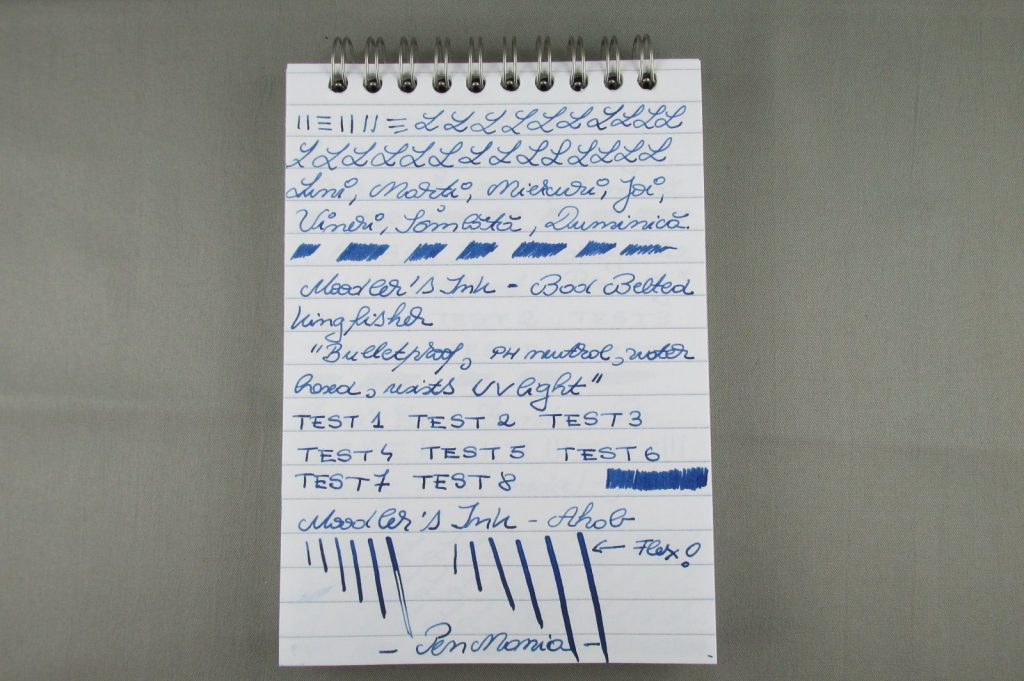 L L L L L L L L L L
L L L L L L L L L L L L L L
Luni, Marti, Miercuri, Joi,
Vineri, Sâmbătă, Duminică.
Noodler's Ink - Bad Belted
Kingfisher
"Bulletproof, PH neutral, water
based, resists UV light"
TEST 1 TEST 2 TEST 3
TEST 4 TEST 5 TEST 6
TEST 7 TEST 8
Noodler's Ink - Ahab
← Flex!
- PenMania -